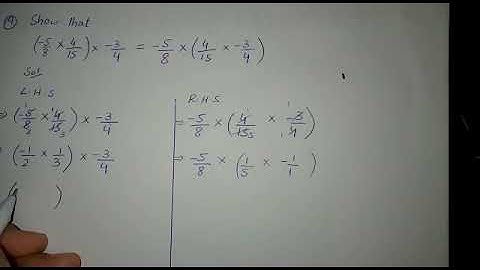 (9) Show that
(-5/8 × 4/15) × -3/4 = -5/8 × (4/15 × -3/4)
Sol
L.H.S
⇒ (-5/8 × 4/15) × -3/4
⇒ (-1/2 × 1/3) × -3/4
( )
R.H.S
⇒ -5/8 × (4/15 × -3/4)
⇒ -5/8 × (1/5 × -1/1)